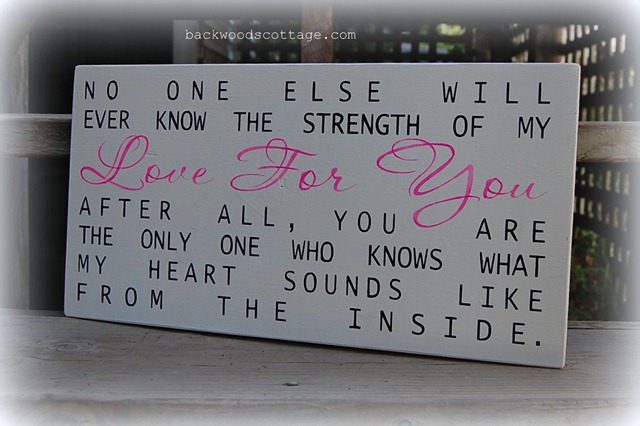 backwoodscottage.com
NO ONE ELSE WILL
EVER KNOW THE STRENGTH OF MY
Love For You
AFTER ALL, YOU ARE
THE ONLY ONE WHO KNOWS WHAT
MY HEART SOUNDS LIKE
FROM THE INSIDE.